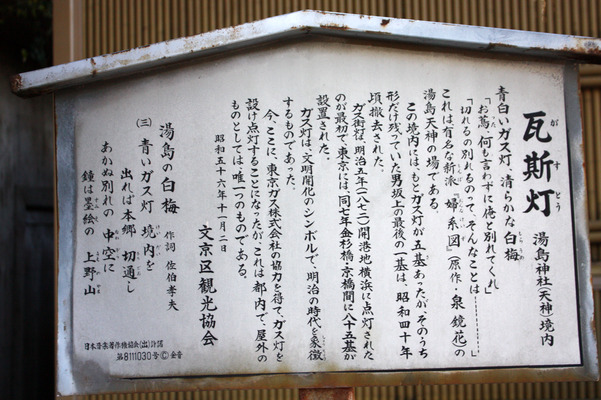 瓦斯灯 湯島神社(天神)境内
がすとう
青白いガス灯、清らかな白梅
しらうめ
「お蔦、何も言わずに俺と別れてくれ」
「切れるの別れるのって、そんなことは………」
これは有名な新派『婦系図』(原作・泉鏡花)の
湯島天神の場である。
この境内にはもとガス灯が五基あったが、そのうち
形だけ残っていた男坂上の最後の一基は、昭和四十年
頃撤去された。
ガス街灯は、明治五年(一八七二)開港地横浜に点灯された
のが最初で、東京には、同七年金杉橋・京橋間に八十五基が
設置された。
ガス灯は、文明開化のシンボルで、明治の時代を象徴
するものであった。
今、ここに、東京ガス株式会社の協力を得て、ガス灯を
設け点灯することになったが、これは都内で、屋外の
ものとしては唯一つのものである。
昭和五十六年十一月二日
文京区観光協会
湯島の白梅 作詞 佐伯孝夫
(三) 青いガス灯 境内を
出れば本郷 切通し
あかぬ別れの 中空に
鐘は墨絵の 上野山
日本音楽著作権協会(出)許諾
第8111030号 Ⓒ 全音